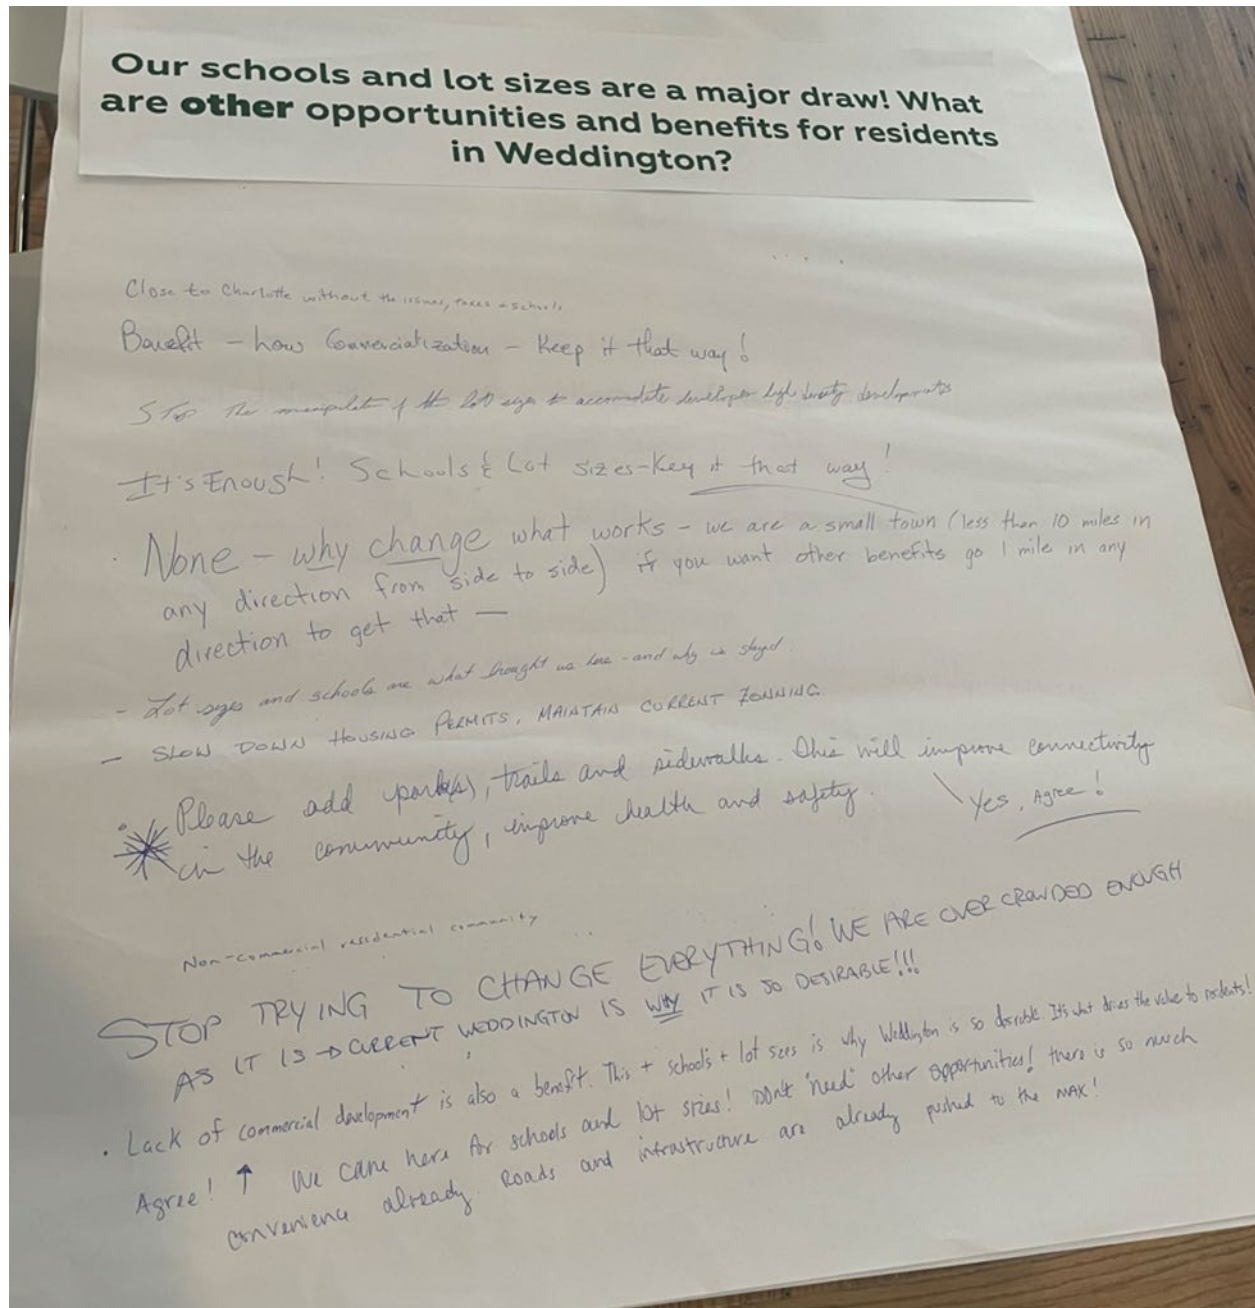 Our schools and lot sizes are a major draw! What
are other opportunities and benefits for residents
in Weddington?
Close to Charlotte without the issues, taxes + schools
Benefit - low Commercialization - Keep it that way!
STOP The manipulation of the lot sizes to accomodate developer high density developments
It's Enough! Schools & Lot sizes-Keep it that way!
None - why change what works - we are a small town (less than 10 miles in
any direction from side to side) if you want other benefits go 1 mile in any
direction to get that -
- Lot sizes and schools are what brought us here - and why we stayed.
- SLOW DOWN HOUSING PERMITS, MAINTAIN CURRENT ZONNING.
Please add park(s), trails and sidewalks. This will improve connectivity
in the community, improve health and safety. \ Yes, Agree!
Non-commercial residential community
STOP TRYING TO CHANGE EVERYTHING! WE ARE OVER CROWDED ENOUGH
AS IT IS → CURRENT WEDDINGTON IS WHY IT IS SO DESIRABLE!!!
• Lack of commercial development is also a benefit. This + schools + lot sizes is why Weddington is so desirable. It's what drives the value to residents!
Agree! ↑ We came here for schools and lot sizes! Don't "need" other opportunities! there is so much
convenience already. Roads and infrastructure are already pushed to the MAX!